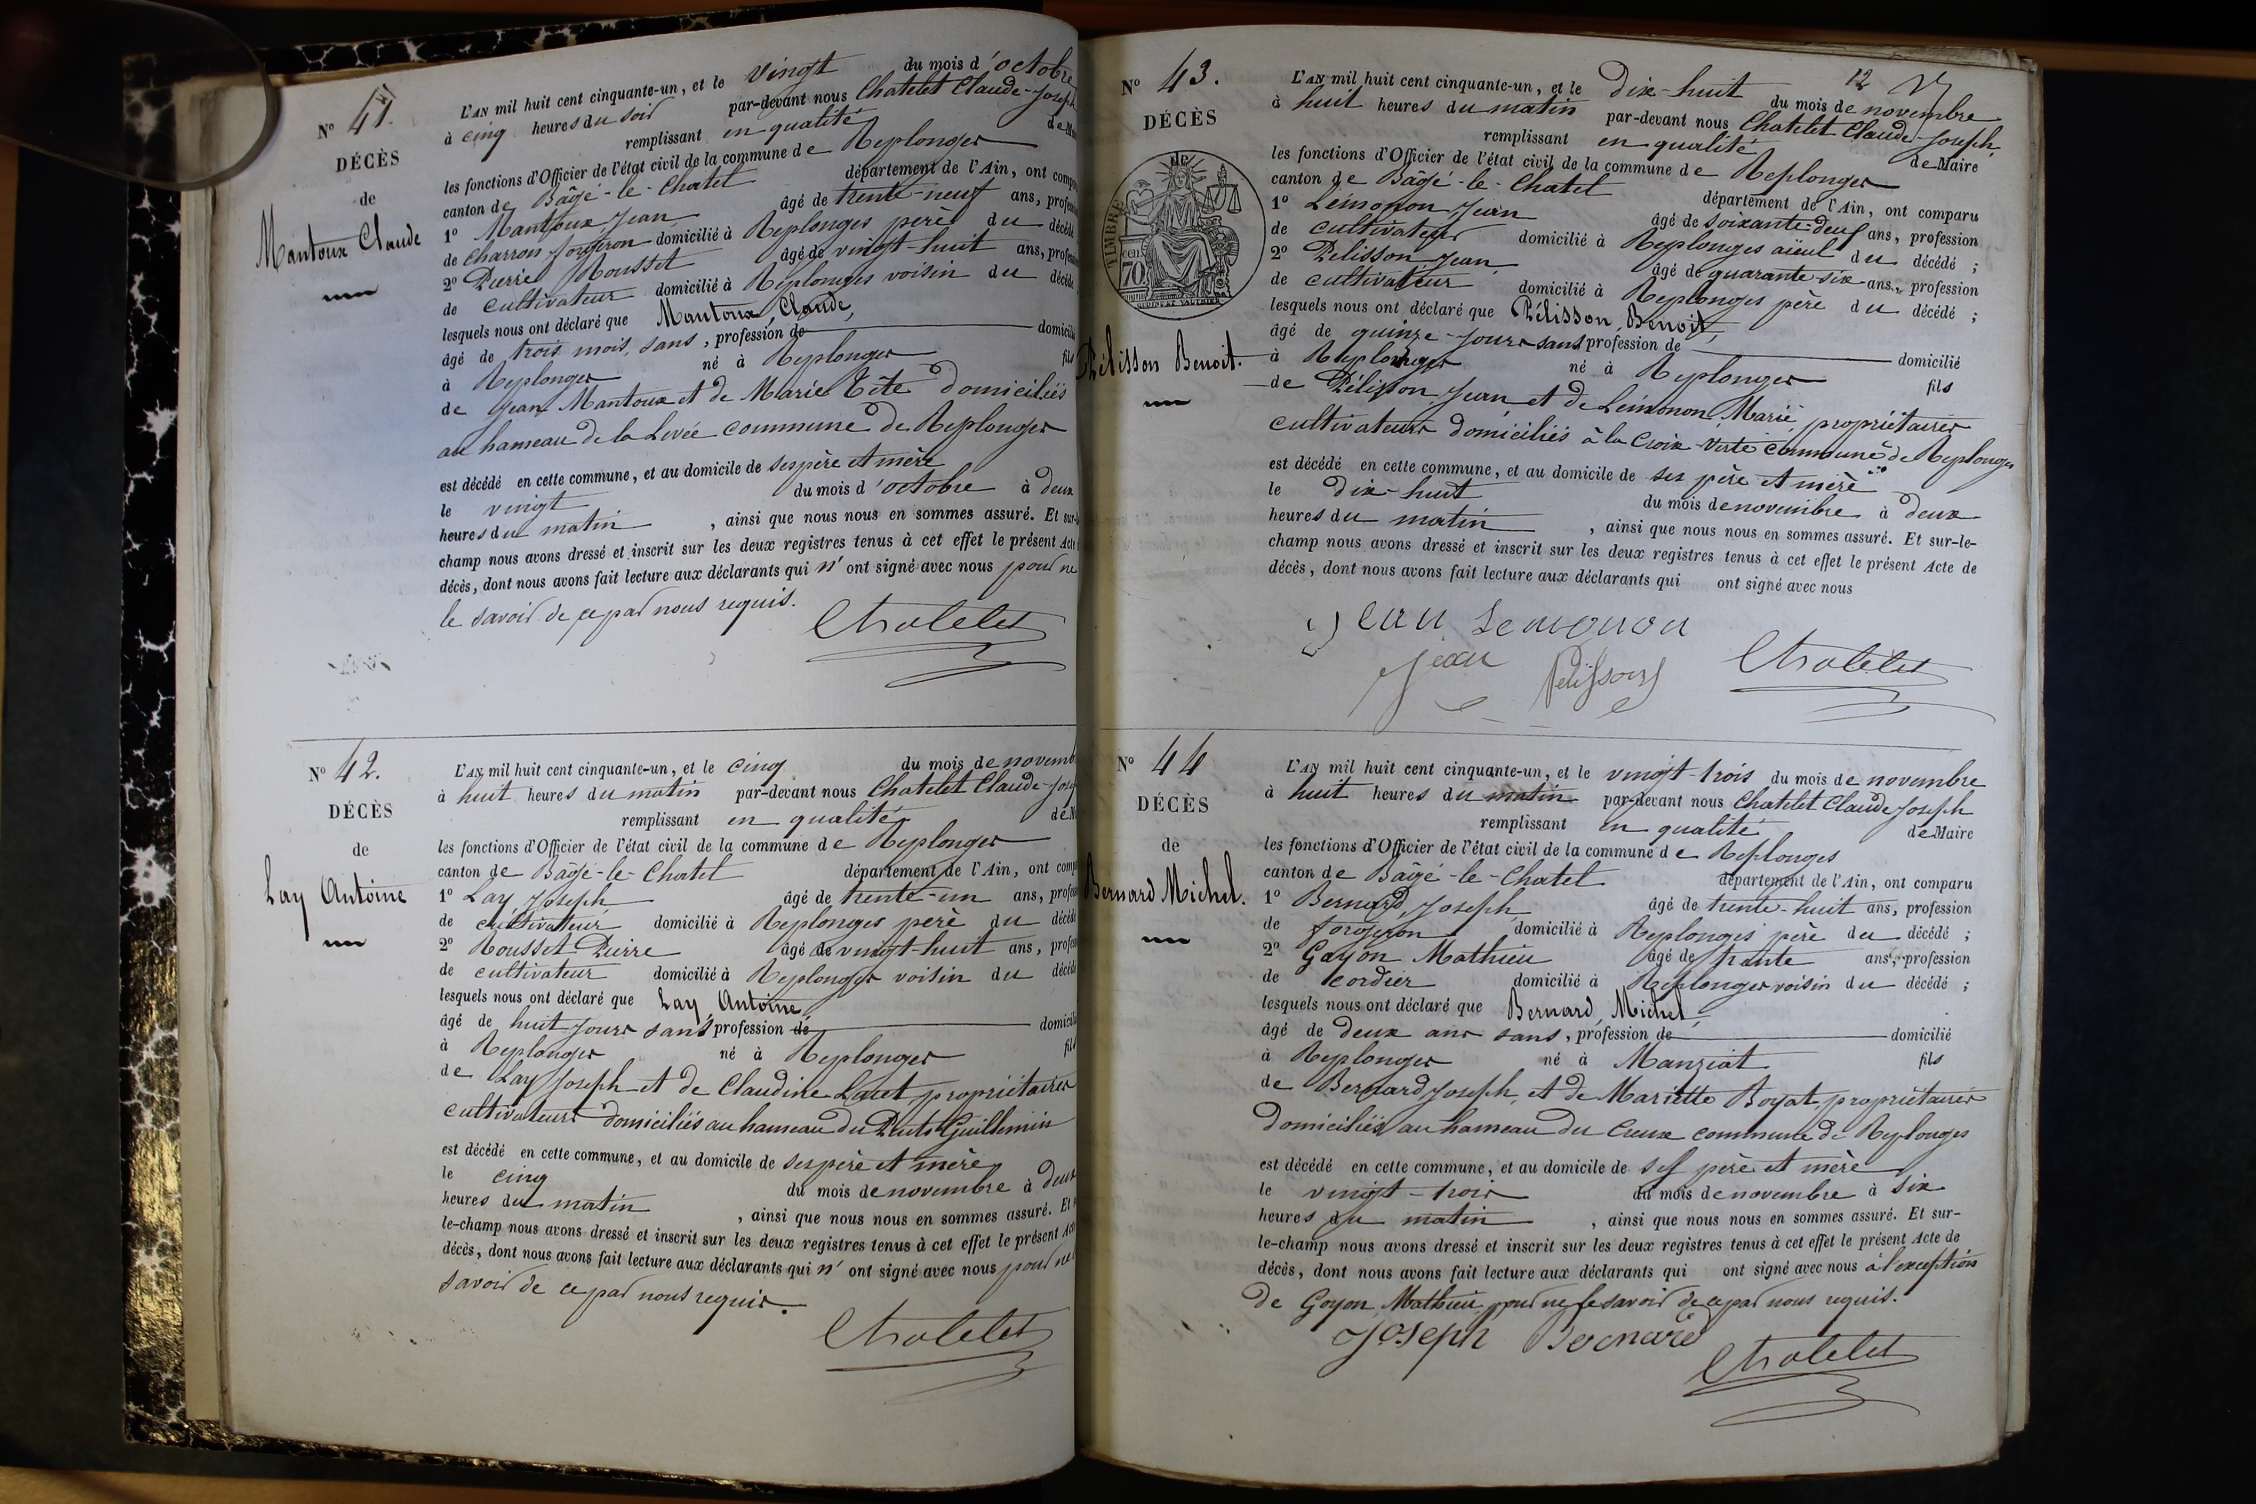 N° 41.
DÉCÈS
de
Mantoux Claude
L'AN mil huit cent cinquante-un, et le vingt du mois d'octobre
à cinq heures du soir par-devant nous Chatelet Claude-Joseph
remplissant en qualité de
les fonctions d'Officier de l'état civil de la commune de Replonges
canton de Bâgé-le-Chatel département de l'Ain, ont
1° Mantoux Jean âgé de trente-neuf ans,
de charron forgeron domicilié à Replonges père du décédé
2° Pierre Rousset âgé de vingt-huit ans,
de cultivateur domicilié à Replonges voisin du décédé
lesquels nous ont déclaré que Mantoux, Claude,
âgé de trois mois, sans, profession de domicilié
à Replonges né à Replonges fils
de Jean Mantoux et de Marie Tête domiciliés
au hameau de la Levée commune de Replonges
est décédé en cette commune, et au domicile de ses père et mère
le vingt du mois d'octobre à deux
heures du matin , ainsi que nous nous en sommes assuré. Et sur-
champ nous avons dressé et inscrit sur les deux registres tenus à cet effet le présent Acte
décès, dont nous avons fait lecture aux déclarants qui n'ont signé avec nous pour ne
le savoir de ce par nous requis.
Chatelet
N° 42.
DÉCÈS
de
Lay Antoine
L'AN mil huit cent cinquante-un, et le cinq du mois de novemb
à huit heures du matin par-devant nous Chatelet Claude-Jos
remplissant en qualité de
les fonctions d'Officier de l'état civil de la commune de Replonges
canton de Bâgé-le-Chatel département de l'Ain, ont
1° Lay Joseph âgé de trente-un ans,
de cultivateur domicilié à Replonges père du décédé
2° Rousset Pierre âgé de vingt-huit ans,
de cultivateur domicilié à Replonges voisin du décédé
lesquels nous ont déclaré que Lay, Antoine,
âgé de huit jours sans profession de domicilié
à Replonges né à Replonges fils
de Lay Joseph et de Claudine Lacet, propriétaires
cultivateurs domiciliés au hameau du Puits Guillemin
est décédé en cette commune, et au domicile de ses père et mère
le cinq du mois de novembre à deux
heures du matin , ainsi que nous nous en sommes assuré. Et
le-champ nous avons dressé et inscrit sur les deux registres tenus à cet effet le présent Acte
décès, dont nous avons fait lecture aux déclarants qui n'ont signé avec nous pour ne
savoir de ce par nous requis.
Chatelet
12
N° 43.
DÉCÈS
de
TIMBRE
70
Pélisson Benoit.
L'AN mil huit cent cinquante-un, et le dix-huit du mois de novembre
à huit heures du matin par-devant nous Chatelet Claude-Joseph,
remplissant en qualité de Maire
les fonctions d'Officier de l'état civil de la commune de Replonges
canton de Bâgé-le-Chatel département de l'Ain, ont comparu
1° Lemonon, Jean âgé de soixante-deux ans, profession
de cultivateur domicilié à Replonges aïeul du décédé ;
2° Pélisson, Jean, âgé de quarante-six ans, profession
de cultivateur domicilié à Replonges père du décédé ;
lesquels nous ont déclaré que Pélisson, Benoit,
âgé de quinze-jours sans profession de domicilié
à Replonges né à Replonges fils
de Pélisson, Jean et de Lémonon, Marie, propriétaires
cultivateurs domiciliés à la Croix-Verte commune de Replonges
est décédé en cette commune, et au domicile de ses père et mère
le dix-huit du mois de novembre à deux
heures du matin , ainsi que nous nous en sommes assuré. Et sur-le-
champ nous avons dressé et inscrit sur les deux registres tenus à cet effet le présent Acte de
décès, dont nous avons fait lecture aux déclarants qui ont signé avec nous
Jean Lemonon
Jean Pelisson Chatelet
N° 44
DÉCÈS
de
Bernard Michel.
L'AN mil huit cent cinquante-un, et le vingt-trois du mois de novembre
à huit heures du matin par-devant nous Chatelet Claude Joseph
remplissant en qualité de Maire
les fonctions d'Officier de l'état civil de la commune de Replonges
canton de Bâgé-le-Chatel département de l'Ain, ont comparu
1° Bernard, Joseph, âgé de trente-huit ans, profession
de forgeron domicilié à Replonges père du décédé ;
2° Goyon Mathieu âgé de trante ans, profession
de cordier domicilié à Replonges voisin du décédé ;
lesquels nous ont déclaré que Bernard, Michel,
âgé de deux ans sans, profession de domicilié
à Replonges né à Manziat fils
de Bernard Joseph, et de Mariette Boyat, propriétaires
domiciliés au hameau du Creux commune de Replonges
est décédé en cette commune, et au domicile de ses père et mère
le vingt-trois du mois de novembre à six
heures du matin , ainsi que nous nous en sommes assuré. Et sur-
le-champ nous avons dressé et inscrit sur les deux registres tenus à cet effet le présent Acte de
décès, dont nous avons fait lecture aux déclarants qui ont signé avec nous à l'exception
de Goyon, Mathieu, pour ne le savoir de ce par nous requis.
Joseph Bernard
Chatelet